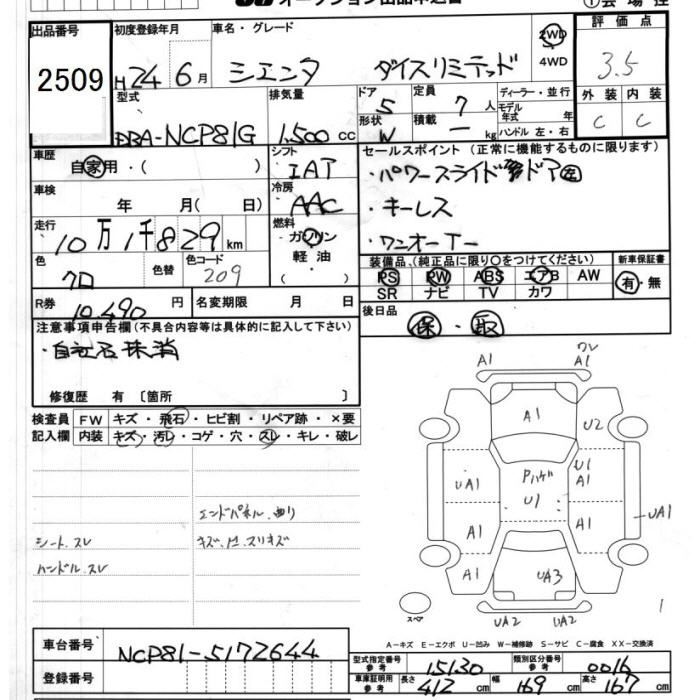 オークション出品申込書
① 会 場 控
出品番号 2509
初度登録年月 H 24 年 6 月
車名・グレード シエンタ ダイスリミテッド
2WD
4WD
評 価 点 3.5
外 装 C
内 装 C
型式 DBA-NCP81G
排気量 1,500 CC
ドア 5
定員 7 人
形状 W
積載 ー kg
ディーラー・並 行
モデル年式 年
ハンドル 左・右
車歴 自家用・( )
シフト IAT
セールスポイント (正常に機能するものに限ります)
・パワースライドドア 左
・キーレス
・ワンオーナー
車検 年 月( 日)
冷房 AAC
走行 10 万 1 千 829 km
燃料 ガソリン
軽 油 ・
( )
色 クロ
色替
色コード 209
装備品 (純正品に限り○をつけてください)
PS PW ABS エアB AW
SR ナビ TV カワ
新車保証書 有・無
R券 10,490 円
名変期限 月 日
後日品 保・取
注意事項申告欄(不具合内容等は具体的に記入して下さい)
・自社名抹消
修復歴 有 〔箇所 〕
検査員記入欄
FW キズ・飛石・ヒビ割・リペア跡・×要
内装 キズ・汚レ・コゲ・穴・スレ・キレ・破レ
エンドパネル.曲り
シート.スレ
キズ.凹.スリキズ
ハンドル.スレ
A1
ワレ
A1
A1
U2
UA1
Pハゲ
U1
U1
A1
A1
A1
UA1
A1
UA3
スペア
UA2 UA2
A−キズ E−エクボ U−凹み W−補修跡 S−サビ C−腐食 XX−交換済
車台番号 NCP81-5172644
登録番号
型式指定番号 参考 15130
類別区分番号 参考 0016
車庫証明用 参考 長さ 412 cm 幅 169 cm 高さ 167 cm